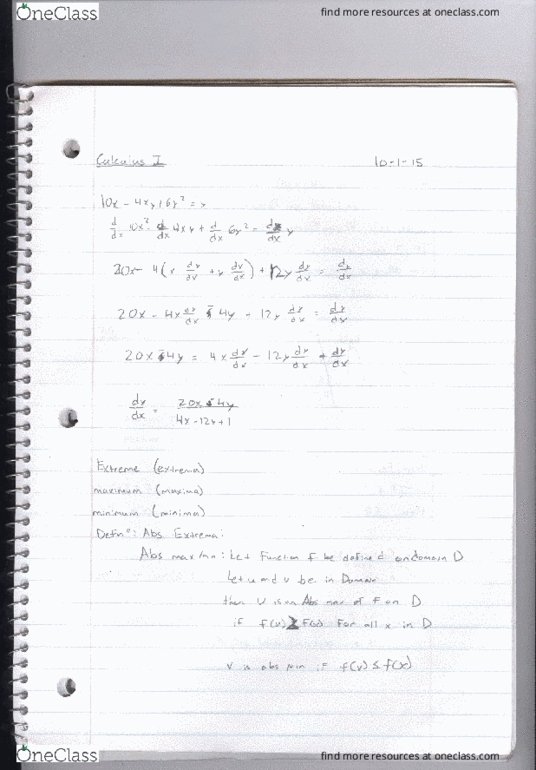 OneClass
find more resources at oneclass.com
Calculus I 10-1-15
10x - 4xy + 6y² = y
d/dx 10x² - d/dx 4xy + d/dx 6y² = d/dx y
20x - 4(x dy/dx + y dx/dx) + 12y dy/dx = dy/dx
20x - 4x dy/dx - 4y - 12y dy/dx = dy/dx
20x - 4y = 4x dy/dx - 12y dy/dx + dy/dx
dy/dx = 20x - 4y / 4x - 12y + 1
Extreme (extrema)
maximum (maxima)
minimum (minima)
Defn": Abs Extrema:
Abs max/min: Let Function f be defined on domain D
Let u and v be in Domain
then U is an Abs max of F on D
if f(u) ≥ F(x) for all x in D
V is abs min if f(v) ≤ f(x)
OneClass
find more resources at oneclass.com